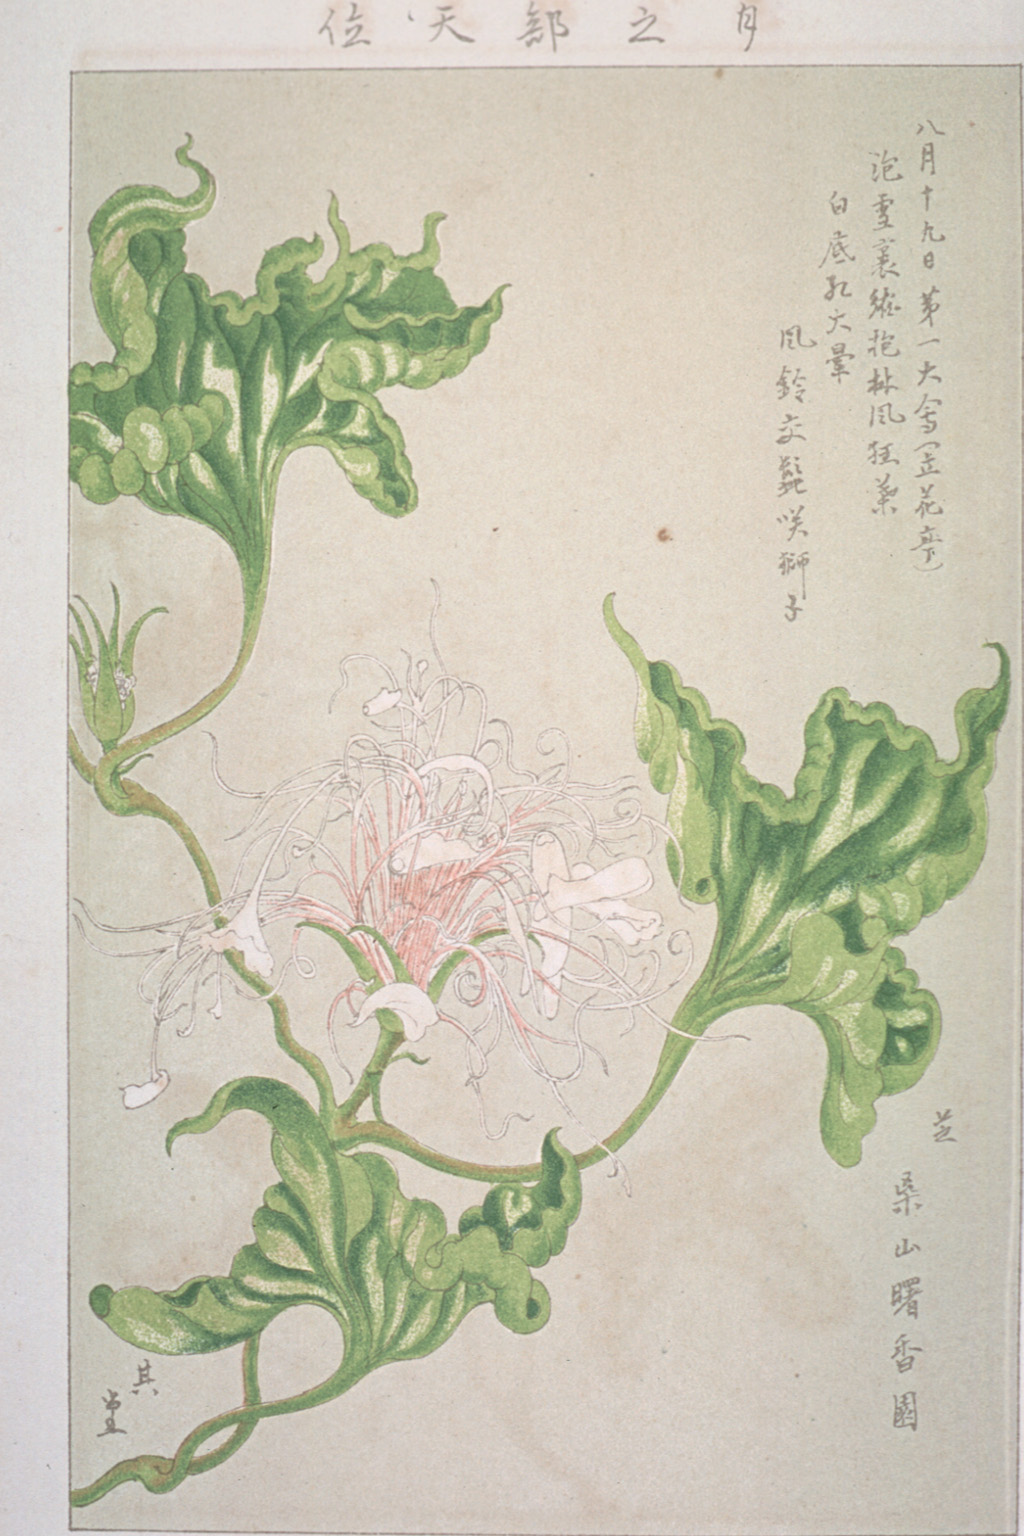 月之部天位
八月十九日第一大会(立花亭)
泡雪裏縮抱林風狂葉
白底紅大暈
風鈴交髭咲獅子
芝
桑山曙香園
其堂